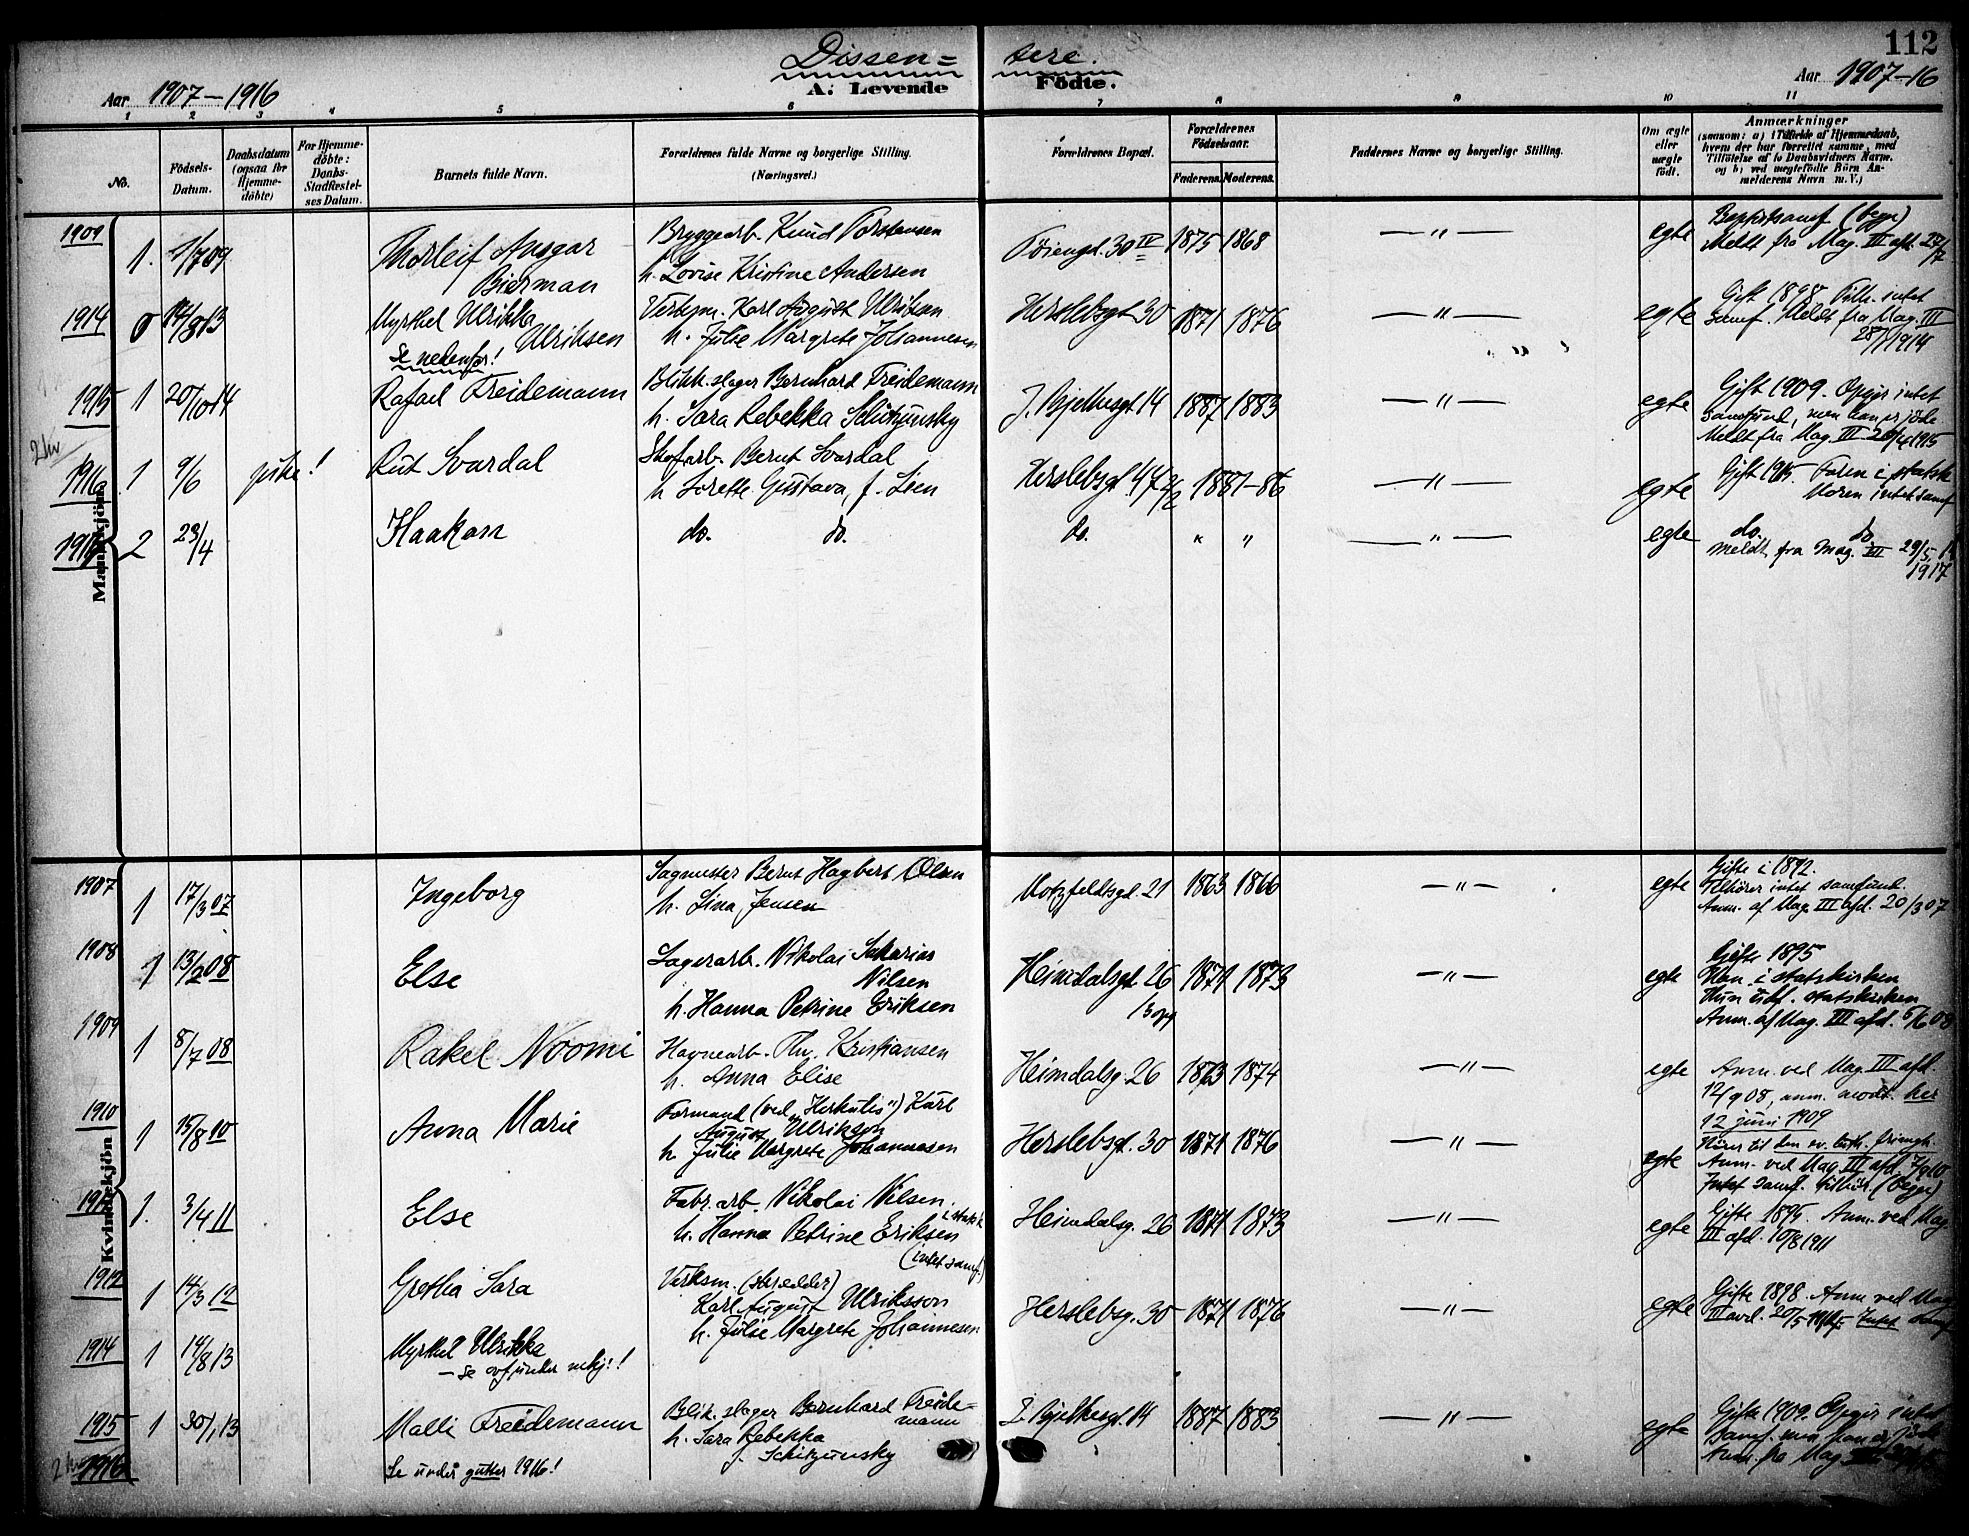 Dissen= tere.
112
Aar 1907–1916
A: Levende Födte.
Aar 1907–16
1 2 3 4 5 6 7 8 9 10 11
No.
Födsels-Datum.
Daabsdatum (ogsaa for Hjemme-döbte)
For Hjemme-döbte: Daabs-Stadfæstel-ses Datum.
Barnets fulde Navn.
Forældrenes fulde Navne og borgerlige Stilling.
(Næringsvei.)
Forældrenes Bopæl.
Forældrenes Födselsaar.
Faderens. Moderens.
Faddernes Navne og borgerlige Stilling.
Om ægte eller uægte födt.
Anmærkninger
(saasom: a) i Tilfælde af Hjemmedaab, hvem der har forrettet samme, med Tilföielse af to Daabsvidners Navne. og b) ved uægtefödte Börn An-melderens Navn m. V.)
Mandkjön
1909 1. 1/7 09 Thorleif Ansgar Bierman
Bryggearb. Knud Torstensen
h. Lovise Kristine Andersen
Töiengd. 30 IV 1875 1868 — " — egte
(begge)
Meldt fra Mag. III afd. 27/7
1914 0 14/8 13 Myrthel Ulrikka Ulriksen
Se nedenfor!
Karl August Ulriksen
h. Julie Margrete Johannesen
Herslebsgt 30 1871 1876 — " — egte
Gift 1898 Tilh. intet
samf. Meldt fra Mag. III
1914
1915 1 20/10 14 Rafael Freidemann
Blikk.slager Bernhard Freidemann
h. Sara Rebekka
14 1887 1883 — " — egte
Gift 1909. Opgir intet
samfund, men han er jöde
Meldt fra Mag. III 1915
1916 1 9/6 pike! Rut Svardal
Bernt Svardal
h. Gustava, f. Lien
Herslebsgt 1887–86 — " — egte
Gift 1915. Faren i statsk
Moren intet samf
1916 2 23/4 Haakon
do. do. do. " " — " — egte
do. do.
meldt fra Mag. III 29/5
1917
Kvindekjön
1907 1 17/3 07 Ingeborg
Sagmester Bernt Hagbert Olsen
h. Lina Jensen
Motzfeldtsgd. 21 1863 1866 — " — egte
Gifte i 1892.
Tilhörer intet samfund.
Anm. af Mag. III afd. 20/3 07
1908 1 13/2 08 Else
Lagerarb. Nikolai Sakarias
Nilsen
h. Hanna Petrine Eriksen
Heimdalsgt 26 1871 1873 — " — egte
Gifte 1895
Han i statskirken
Hun udt. statskirken
Anm. af Mag. III afd. 5/6 08
1909 1 8/7 08 Rakel Noomi
Havnearb. Kristiansen
h. Anna Elise
Heimdalsg. 26 1863 1874 — " — egte
Anm. ved Mag. III afd.
12/9 08, anm. modt. her
12 juni 1909
1910 1 15/8 10 Anna Marie
Formand (ved "Herkules") Karl
August Ulrikson
h. Julie Margrete Johannesen
Herslebsgt. 30 1871 1876 — " — egte
Hörer til den ev. luth. frimgh.
Anm. ved Mag III afd. 7/9 10
Intet samf. tilhör. (begge)
1. 3/4 11 Else
Fabr. arb. Nikolai Nilsen, i statsk
h. Hanna Petrine Eriksen
(intet samf.)
Heimdalsg. 26 1871 1873 — " — egte
Gifte 1895. Anm. ved Mag
III afd. 10/8 1911
1912 1 14/3 12 Gretha Sara
Verksm. (skredder)
Karl August Ulriksson
h. Julie Margrete Johannesen
Herslebsg. 30 1871 1876 — " — egte
Gifte 1898. Anm ved Mag
III avd. 20/5 Intet samf
1914 1 14/8 13 Myrthel Ulrikka
1915 1 30/1 13 Malli Freidemann
Blik.slager Bernhard Freide=
mann
h. Sara Rebekka
14 1887 1883 — " — egte
Gifte 1909. Opgir intet
samf. men han er jöde
Anm. fra Mag
1916 Se under gutter 1916!